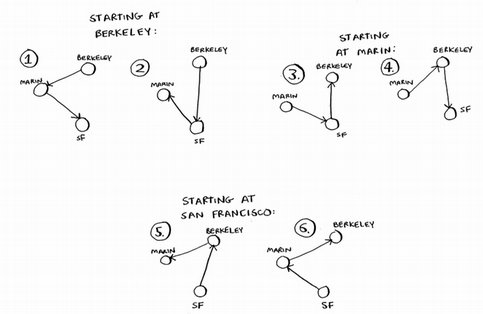 STARTING AT
BERKELEY:
1
BERKELEY
MARIN
SF
2
BERKELEY
MARIN
SF
STARTING
AT MARIN:
3.
BERKELEY
MARIN
SF
4
BERKELEY
MARIN
SF
STARTING AT
SAN FRANCISCO:
5.
BERKELEY
MARIN
SF
6.
BERKELEY
MARIN
SF